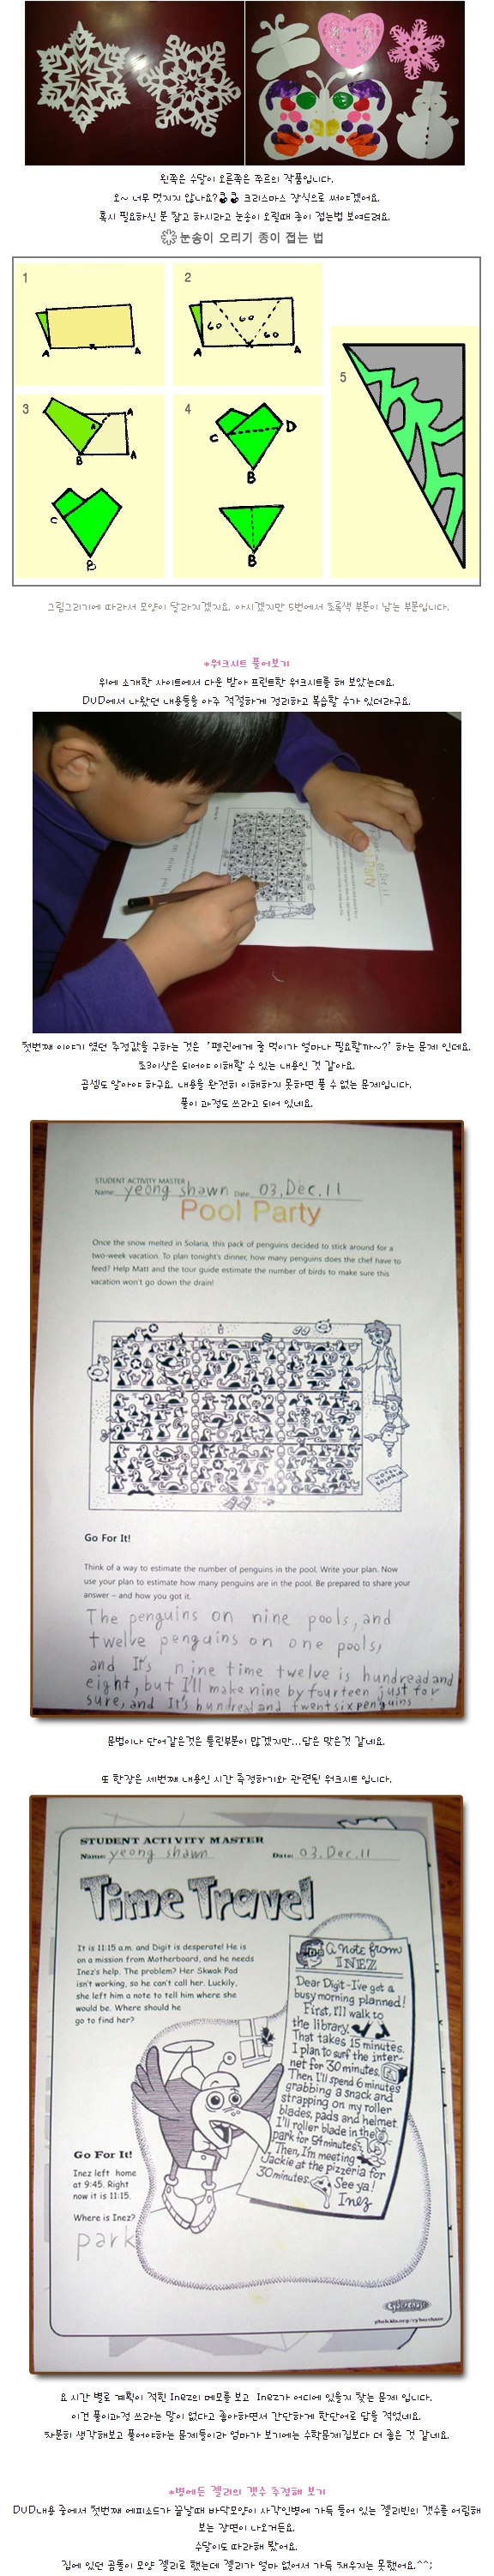 왼쪽은 수달이 오른쪽은 쭈르의 작품입니다.
오~ 너무 멋지지 않나요? 크리스마스 장식으로 써야겠어요.
혹시 필요하신 분 참고 하시라고 눈송이 오릴때 종이 접는법 보여드려요.
눈송이 오리기 종이 접는 법
1
A A
2
60 60 60
A A
3
A
A
B A
C
B
4
C D
B
B
5
그림그리기에 따라서 모양이 달라지겠지요. 아시겠지만 5번에서 초록색 부분이 남는 부분입니다.
*워크시트 풀어보기
위에 소개한 사이트에서 다운 받아 프린트한 워크시트를 해 보았는데요.
DVD에서 나왔던 내용들을 아주 적절하게 정리하고 복습할 수가 있더라구요.
첫번째 이야기 였던 추정값을 구하는 것은 '펭귄에게 줄 먹이가 얼마나 필요할까~?' 하는 문제 인데요.
초3이상은 되어야 이해할 수 있는 내용인 것 같아요.
곱셈도 알아야 하구요. 내용을 완전히 이해하지 못하면 풀 수 없는 문제입니다.
풀이 과정도 쓰라고 되어 있네요.
STUDENT ACTIVITY MASTER
Name: yeong shawn Date: 03.Dec.11
Pool Party
Once the snow melted in Solaria, this pack of penguins decided to stick around for a
two-week vacation. To plan tonight's dinner, how many penguins does the chef have to
feed? Help Matt and the tour guide estimate the number of birds to make sure this
vacation won't go down the drain!
Go For It!
Think of a way to estimate the number of penguins in the pool. Write your plan. Now
use your plan to estimate how many penguins are in the pool. Be prepared to share your
answer – and how you got it.
The penguins on nine pools, and
twelve penguins on one pools,
and It's nine time twelve is hundred and
eight, but I'll make nine by fourteen just for
sure, and It's hundred and twentsix penguins
문법이나 단어같은것은 틀린부분이 많겠지만...답은 맞은것 같네요.
또 한장은 세번째 내용인 시간 측정하기와 관련된 워크시트 입니다.
STUDENT ACTIVITY MASTER
Name: yeong shawn Date: 03.Dec.11
Time Travel
It is 11:15 a.m. and Digit is desperate! He is
on a mission from Motherboard, and he needs
Inez's help. The problem? Her Skwak Pad
isn't working, so he can't call her. Luckily,
she left him a note to tell him where she
would be. Where should he
go to find her?
A note from
INEZ
Dear Digit-I've got a
busy morning planned!
First, I'll walk to
the library.
That takes 15 minutes.
I plan to surf the inter-
net for 30 minutes.
Then I'll spend 6 minutes
grabbing a snack and
strapping on my roller
blades, pads and helmet.
I'll roller blade in the
park for 54 minutes.
Then, I'm meeting
Jackie at the pizzeria for
30 minutes.
See ya!
Inez
Go For It!
Inez left home
at 9:45. Right
now it is 11:15.
Where is Inez?
park
cyberchase
pbskids.org/cyberchase
요 시간 별로 계획이 적힌 Inez의 메모를 보고 Inez가 어디에 있을지 찾는 문제 입니다.
이건 풀이과정 쓰라는 말이 없다고 좋아하면서 간단하게 한단어로 답을 적었네요.
차분히 생각해보고 풀어야하는 문제들이라 엄마가 보기에는 수학문제집보다 더 좋은 것 같네요.
*병에든 젤리의 갯수 추정해 보기
DVD내용 중에서 첫번째 에피소드가 끝날때 바닥모양이 사각인병에 가득 들어 있는 젤리빈의 갯수를 어림해
보는 장면이 나오거든요.
수달이도 따라해 봤어요.
집에 있던 곰돌이 모양 젤리로 했는데 젤리가 얼마 없어서 가득 채우지는 못했어요.^^;